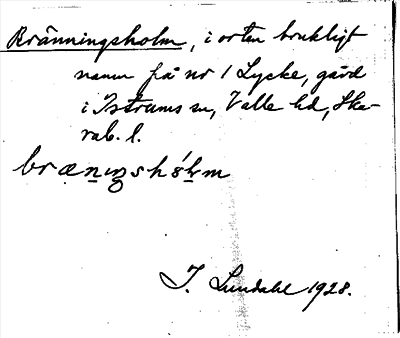 Bränningsholm, i orten brukligt
namn på nr 1 Lycke, gård
i Istrums sn, Valle hd, Ska-
rab. l.
bræningshólm
I. Lundahl 1928.